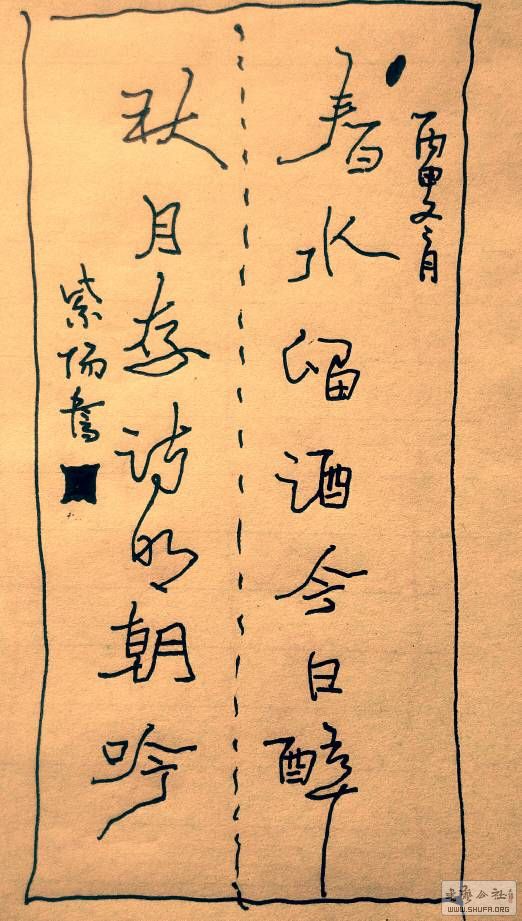 丙申
春水留酒今日醉
秋月存诗明朝吟
紫
书艺公社
WWW.SHUFA.ORG